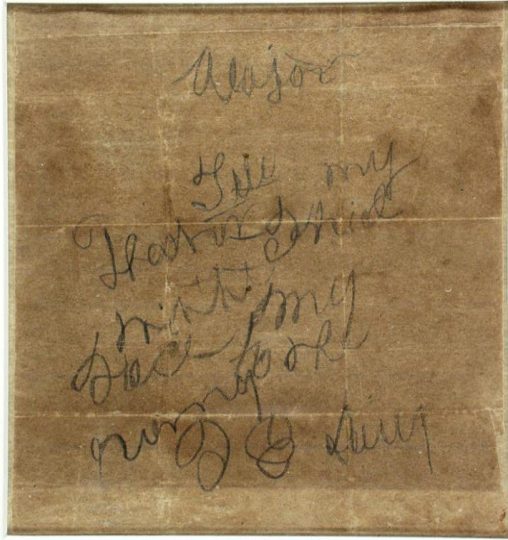 Major
Tell my
Father I died
with my
Face to the
enemy
I E Avery